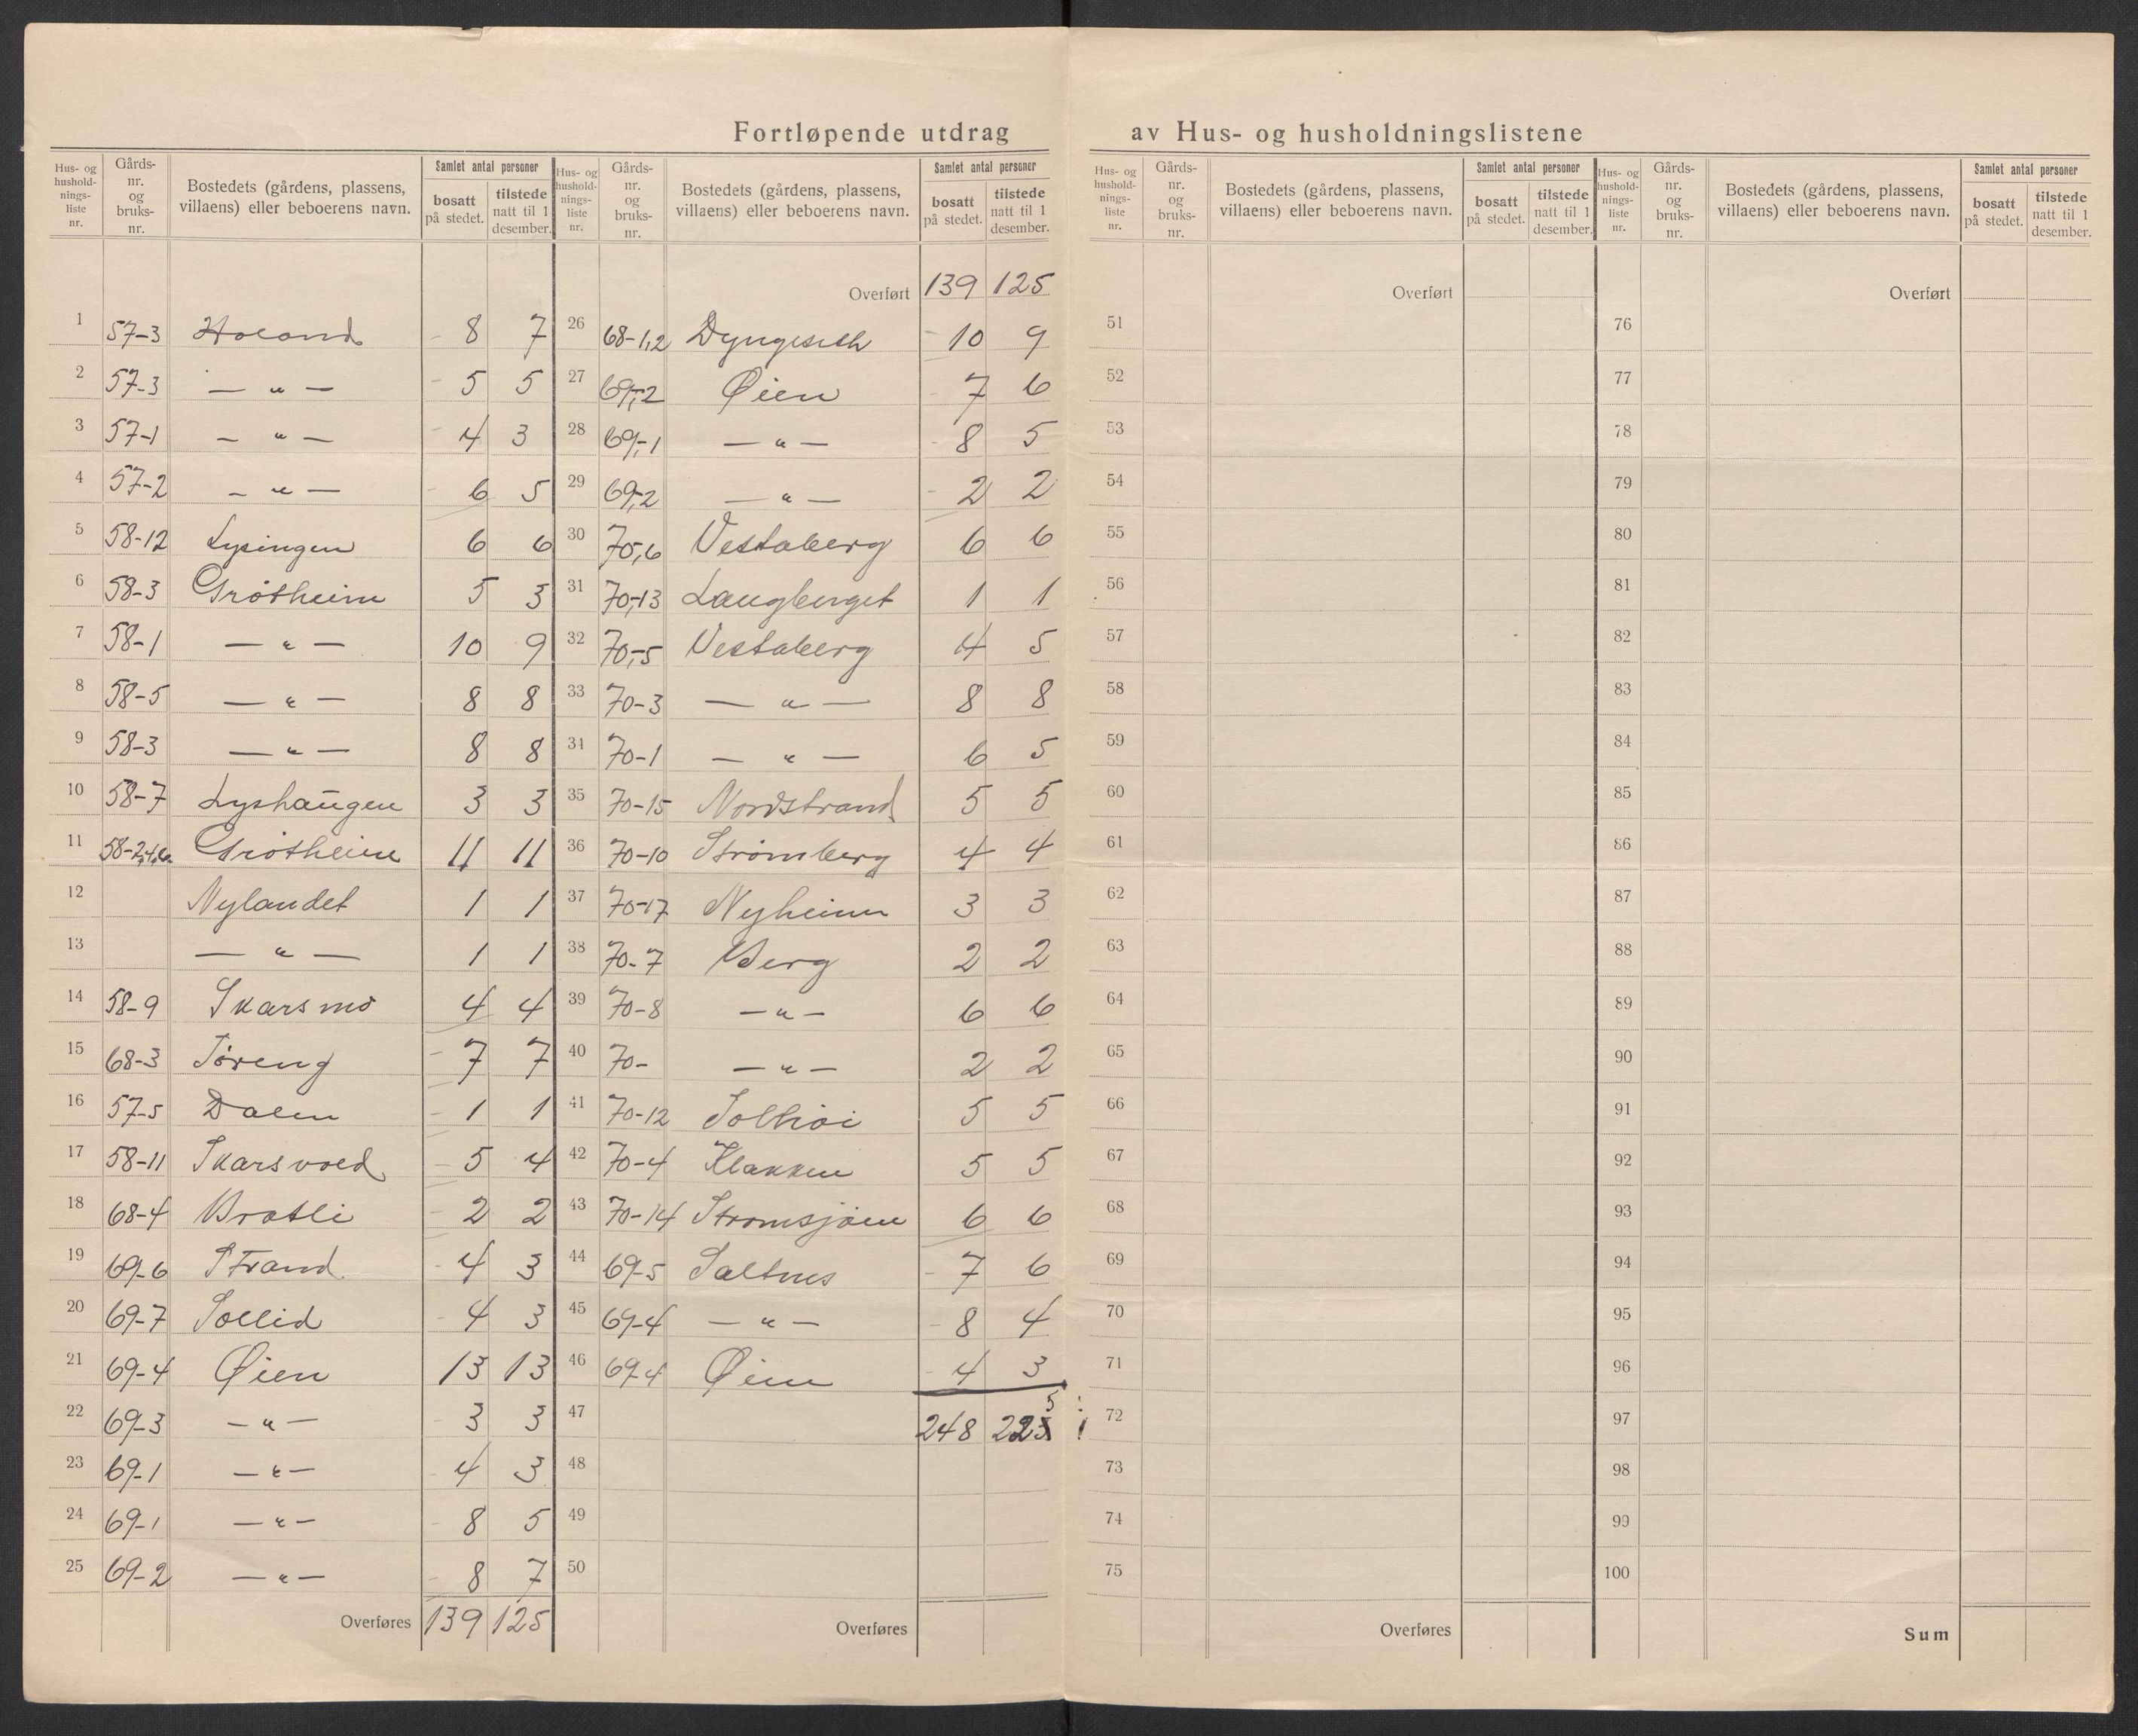 Fortløpende utdrag av Hus- og husholdningslistene
Hus- og husholdningsliste nr. Gårdsnr. og bruksnr. Bostedets (gårdens, plassens, villaens) eller beboerens navn. Samlet antal personer bosatt på stedet. tilstede natt til 1 desember.
1 57-3 Holand 8 7
2 57-3 — " — 5 5
3 57-1 — " — 4 3
4 57-2 — " — 6 5
5 58-12 Lysingen 6 6
6 58-3 Grötheim 5 3
7 58-1 — " — 10 9
8 58-5 — " — 8 8
9 58-3 — " — 8 8
10 58-7 Lyshaugen 3 3
11 58-2,4,6 Grötheim 11 11
12 Nylandet 1 1
13 — " — 1 1
14 58-9 Skarsmo 4 4
15 68-3 Töreng 7 7
16 57-5 Dalen 1 1
17 58-11 Skarsvold 5 4
18 68-4 Bratli 2 2
19 69-6 Strand 4 3
20 69-7 Sollid 4 3
21 69-4 Øien 13 13
22 69-3 — " — 3 3
23 69-1 — " — 4 3
24 69-1 — " — 8 5
25 69-2 — " — 8 7
Overføres 139 125
Hus- og husholdningsliste nr. Gårdsnr. og bruksnr. Bostedets (gårdens, plassens, villaens) eller beboerens navn. Samlet antal personer bosatt på stedet. tilstede natt til 1 desember.
Overført 139 125
26 68-1,2 Dyngeseth 10 9
27 69,-2 Øien 7 6
28 69,-1 — " — 8 5
29 69,2 — " — 2 2
30 70,6 Vestaberg 6 6
31 70,-13 Langberget 1 1
32 70,-5 Vestaberg 4 5
33 70-3 — " — 8 8
34 70-1 — " — 6 5
35 70-15 Nordstrand 5 5
36 70-10 Strømberg 4 4
37 70-17 Nyheim 3 3
38 70-7 Berg 2 2
39 70-8 — " — 6 6
40 70- — " — 2 2
41 70-12 Solhöi 5 5
42 70-4 Klakken 5 5
43 70-14 Strømsjöen 6 6
44 69-5 Saltnes 7 6
45 69-4 — " — 8 4
46 69-4 Øien 4 3
47 248 223 5
48
49
50
Overføres
Hus- og husholdningsliste nr. Gårdsnr. og bruksnr. Bostedets (gårdens, plassens, villaens) eller beboerens navn. Samlet antal personer bosatt på stedet. tilstede natt til 1 desember.
Overført
51
52
53
54
55
56
57
58
59
60
61
62
63
64
65
66
67
68
69
70
71
72
73
74
75
Overføres
Hus- og husholdningsliste nr. Gårdsnr. og bruksnr. Bostedets (gårdens, plassens, villaens) eller beboerens navn. Samlet antal personer bosatt på stedet. tilstede natt til 1 desember.
Overført
76
77
78
79
80
81
82
83
84
85
86
87
88
89
90
91
92
93
94
95
96
97
98
99
100
Sum